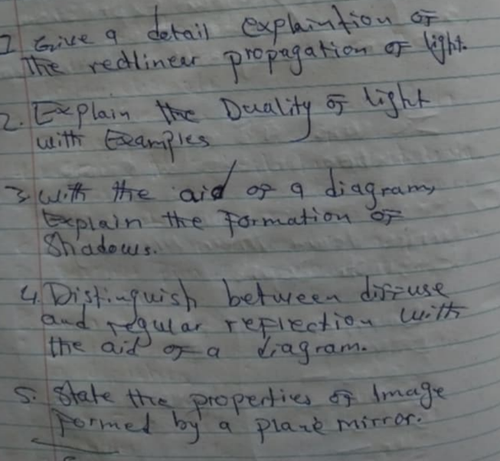 1 Give a detail explaintion of
the redlinear propagation of light.
2. Explain the Duality of light
with Examples
3. with the aid of a diagram,
Explain the Formation of
Shadows.
4. Distinguish between diffuse
and regular reflection with
the aid of a diagram.
5. State the properties of Image
Formed by a plane mirror.